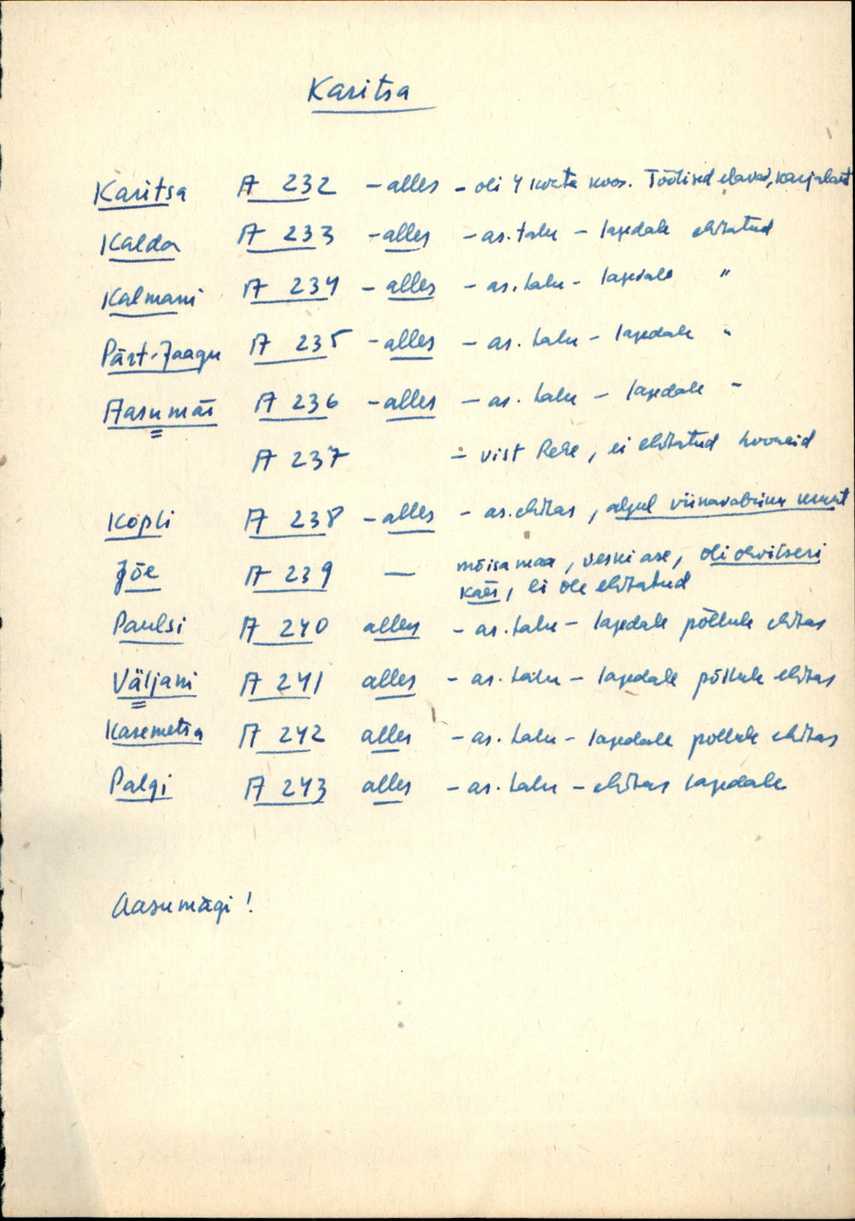 Karitsa
Karitsa A 232 – alles – oli 4 kohta koos. Töölised elavad, karjalaut
Kalda A 233 – alles – as. talu – lagedale ehitatud
Kalmani A 234 – alles – as. talu – lagedale "
Pärt-Jaagu A 235 – alles – as. talu – lagedale "
Aasumäe A 236 – alles – as. talu – lagedale "
A 237 – vist Rehe, ei ehitatud hooneid
Kopli A 238 – alles – as. ehitas, algul viinavabriku
Jõe A 239 — mõisa maa, veski ase, oli ohvitseri
käes, ei ole ehitatud
Paulsi A 240 alles – as. talu – lagedale põllule ehitas
Väljani A 241 alles – as. talu – lagedale põllule ehitas
Kasemetsa A 242 alles – as. talu – lagedale põllule ehitas
Palgi A 243 alles – as. talu – ehitas lagedale
Aasumägi!